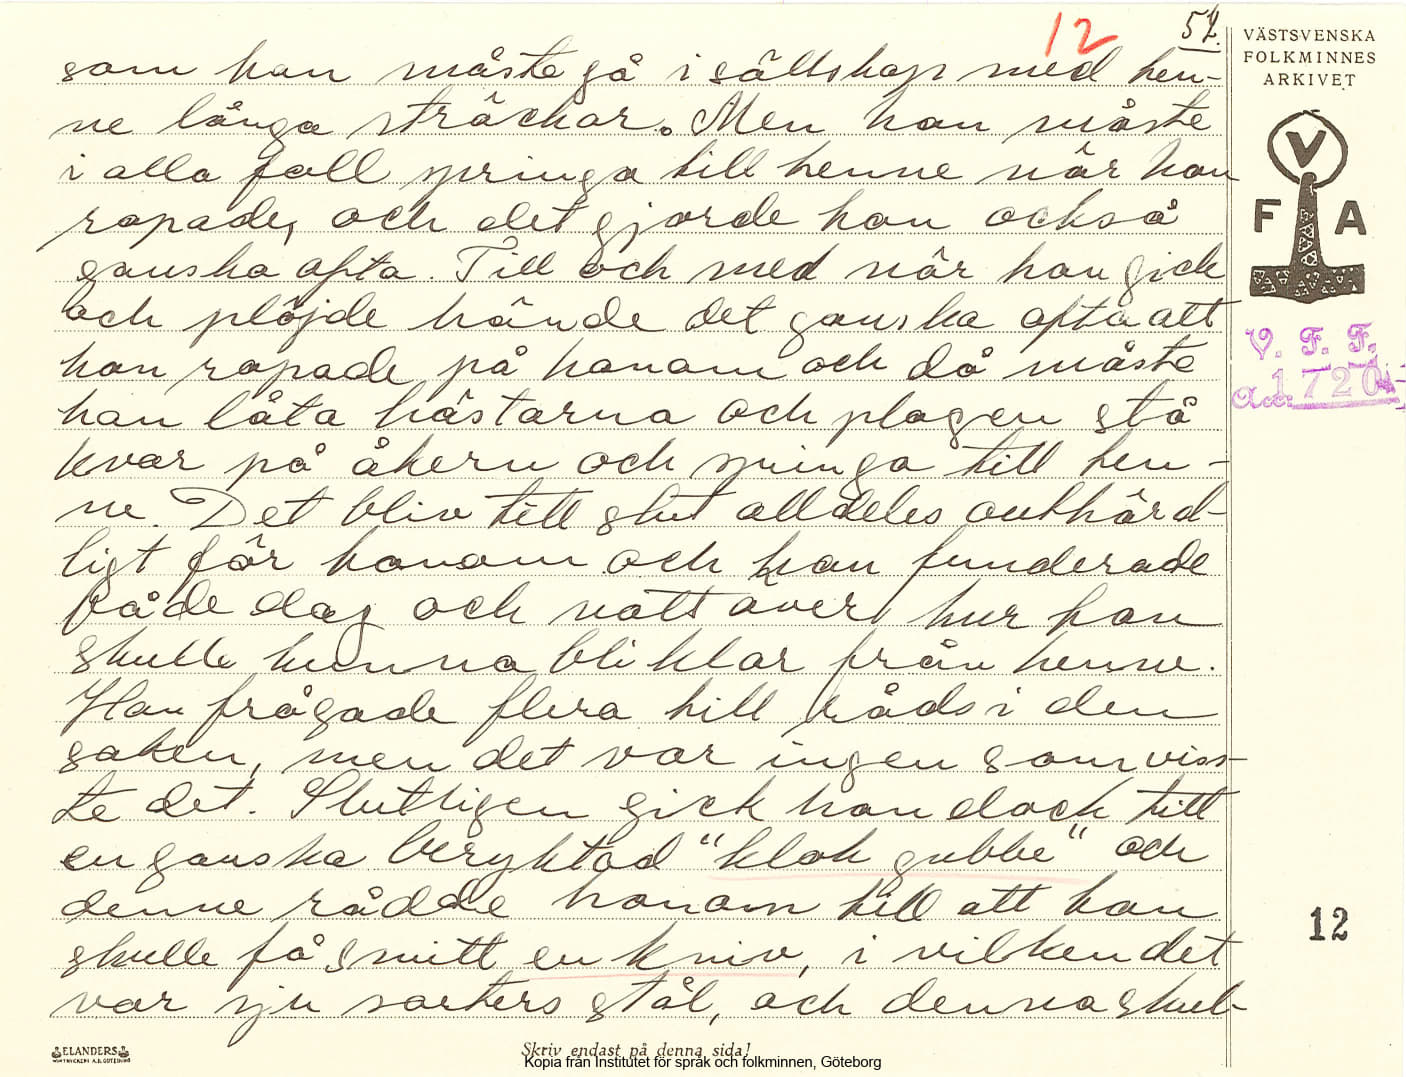 12 52.
VÄSTSVENSKA
FOLKMINNES
ARKIVET
V
F A
V. F. F.
Acc. 1720
som han måste gå i sällskap med hen-
ne långa sträckor. Men han måste
i alla fall springa till henne när hon
ropade, och det gjorde hon också
ganska ofta. Till och med när han gick
och plöjde hände det ganska ofta att
hon ropade på honom och då måste
han låta hästarna och plogen stå
kvar på åkern och springa till hen-
ne. Det bliv till slut alldeles outhärd-
ligt för honom och han funderade
både dag och natt över, hur han
skulle kunna bli klar från henne.
Han frågade flera till råds i den
saken, men det var ingen som viss-
te det. Slutligen gick han dock till
en ganska beryktad "klok gubbe" och
denne rådde honom till att han
skulle få smitt en kniv, i vilken det
var sju sorters stål, och denna skul-
12
ELANDERS
Skriv endast på denna sida!
Kopia från Institutet för språk och folkminnen, Göteborg